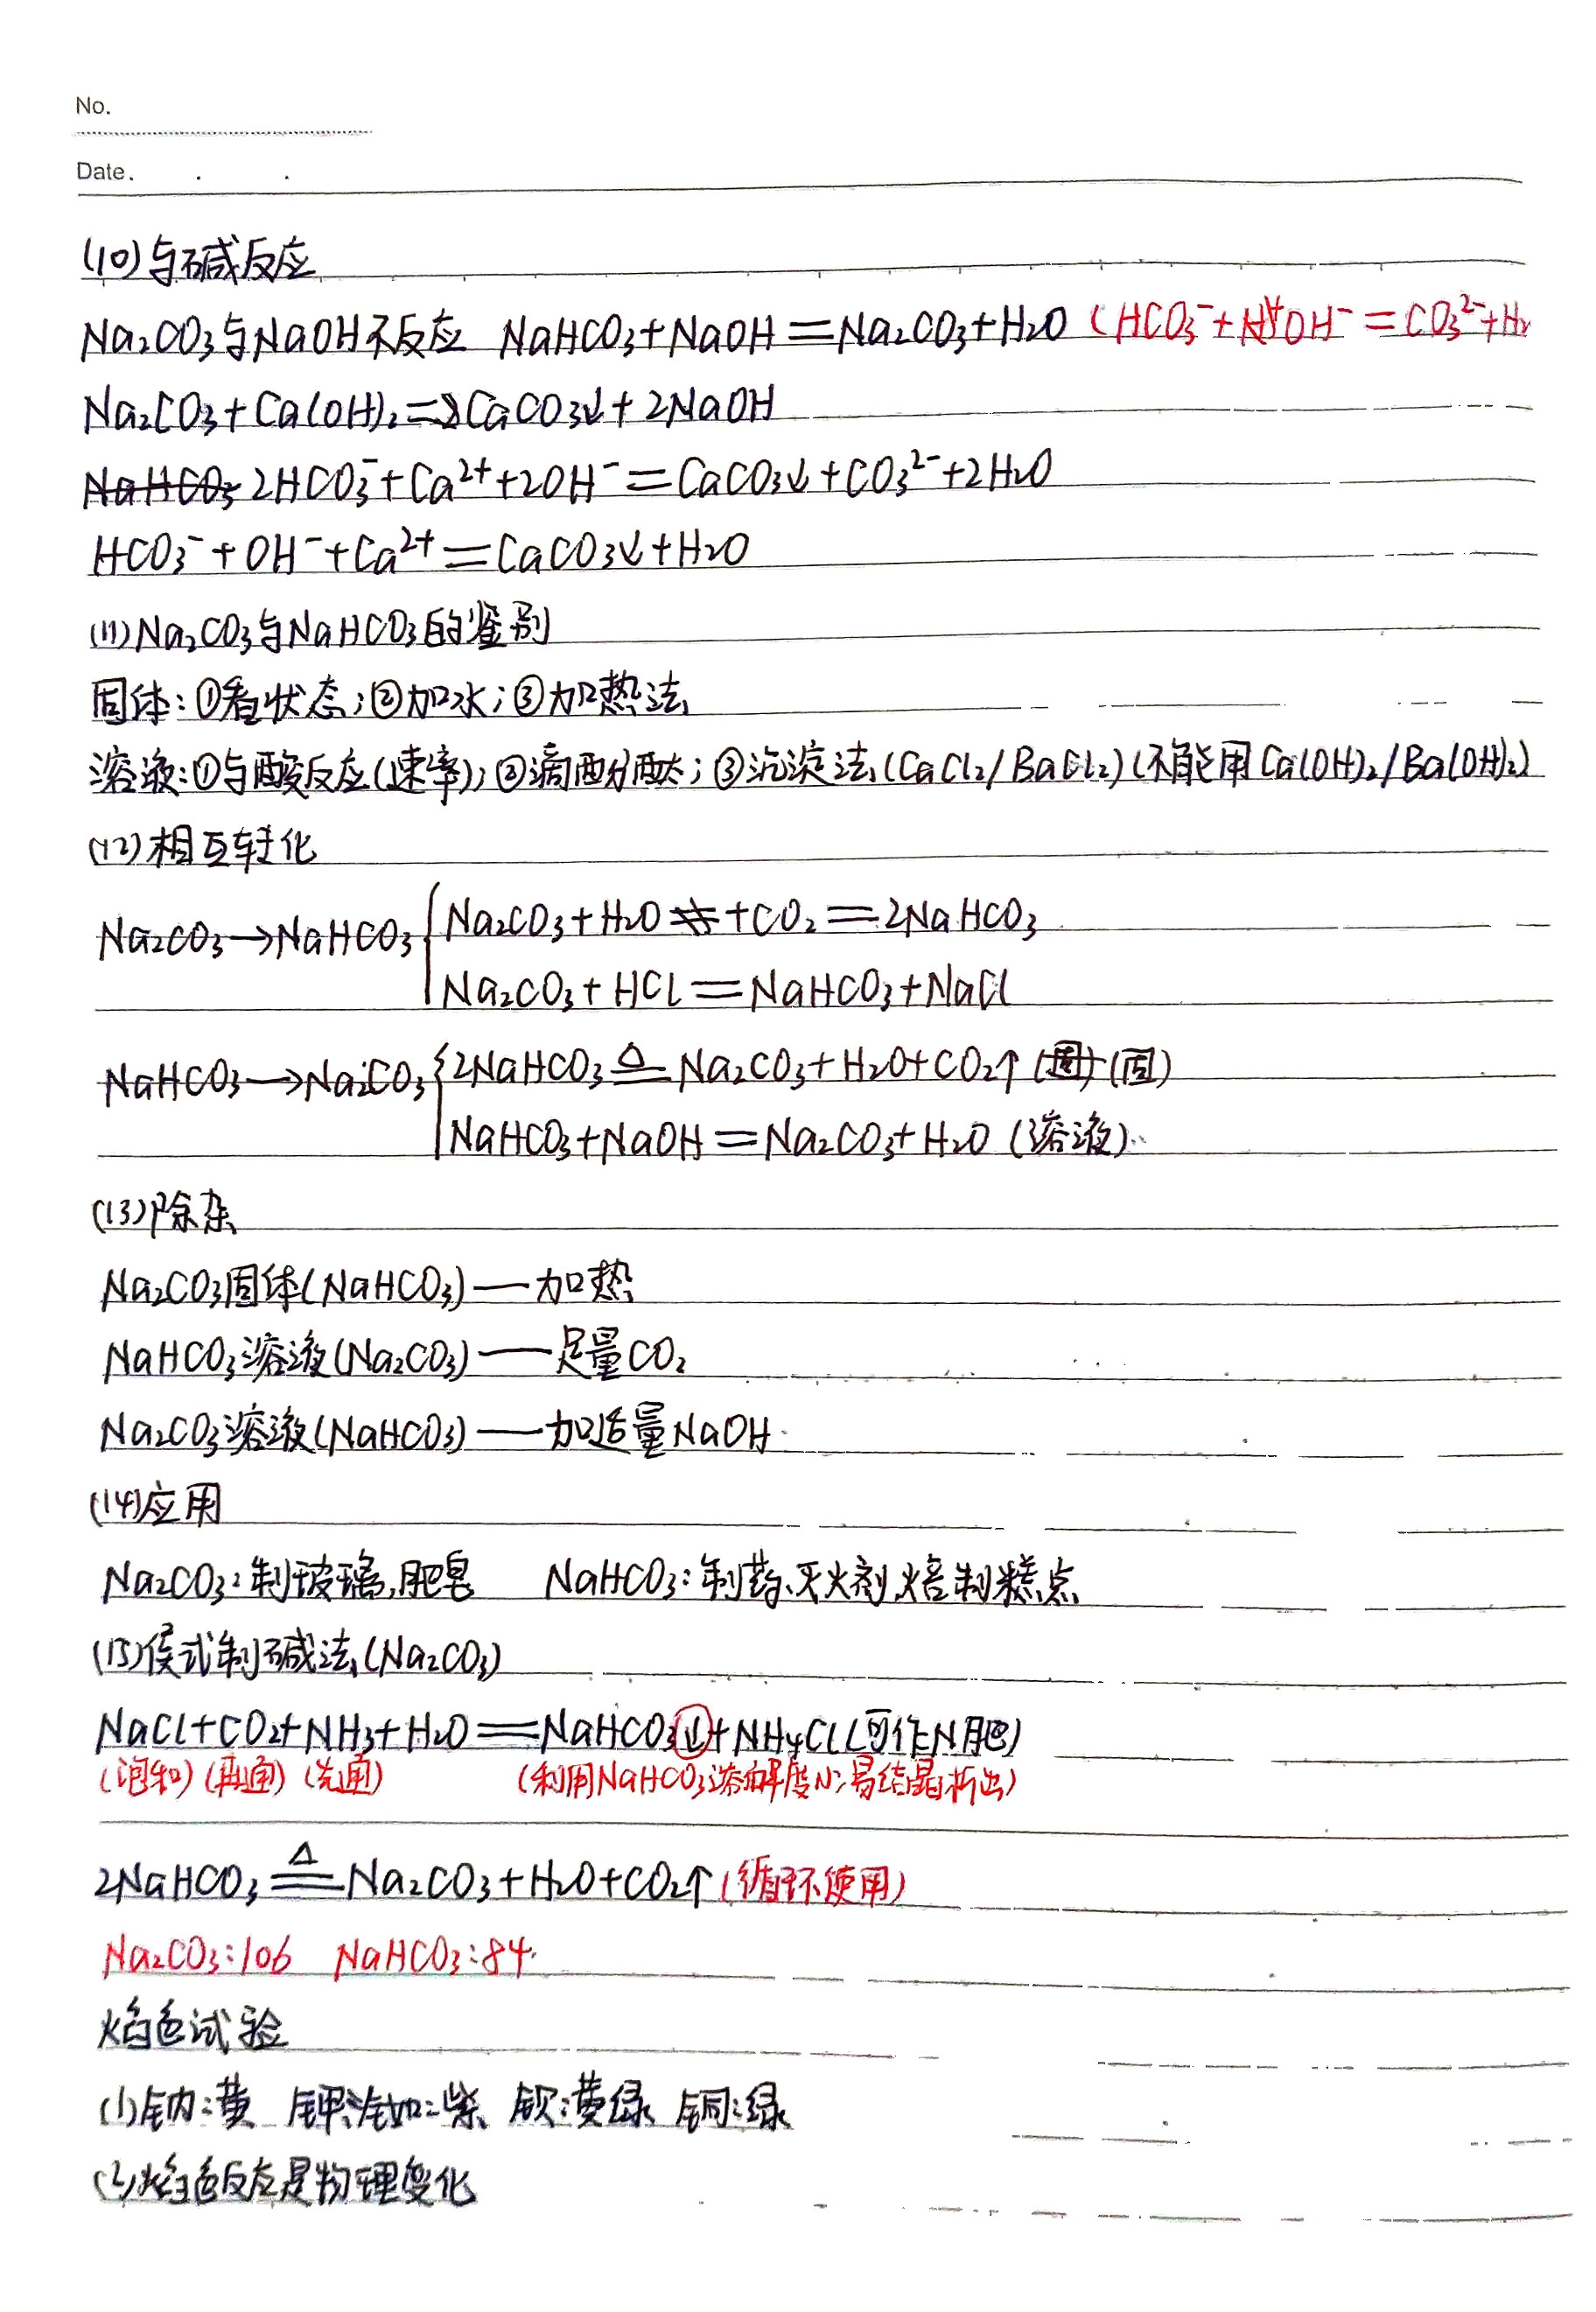 No.
Date. . .
(10)与碱反应
Na₂CO₃与NaOH不反应 NaHCO₃+NaOH=Na₂CO₃+H₂O (HCO₃⁻+OH⁻=CO₃²⁻+H₂
Na₂CO₃+Ca(OH)₂=CaCO₃↓+2NaOH
NaHCO₃ 2HCO₃⁻+Ca²⁺+2OH⁻=CaCO₃↓+CO₃²⁻+2H₂O
HCO₃⁻+OH⁻+Ca²⁺=CaCO₃↓+H₂O
(11)Na₂CO₃与NaHCO₃的鉴别
固体:①看状态;②加水;③加热法
溶液:①与酸反应(速率);②滴酚酞;③沉淀法(CaCl₂/BaCl₂)(不能用Ca(OH)₂/Ba(OH)₂)
(12)相互转化
Na₂CO₃→NaHCO₃{Na₂CO₃+H₂O+CO₂=2NaHCO₃
Na₂CO₃+HCl=NaHCO₃+NaCl
NaHCO₃→Na₂CO₃{2NaHCO₃≜Na₂CO₃+H₂O+CO₂↑(固)
NaHCO₃+NaOH=Na₂CO₃+H₂O(溶液)
(13)除杂
Na₂CO₃固体(NaHCO₃)—加热
NaHCO₃溶液(Na₂CO₃)—足量CO₂
Na₂CO₃溶液(NaHCO₃)—加适量NaOH
(14)应用
Na₂CO₃:制玻璃,肥皂 NaHCO₃:制药、灭火剂,焙制糕点
(15)侯式制碱法(Na₂CO₃)
NaCl+CO₂+NH₃+H₂O=NaHCO₃↓+NH₄Cl(可作N肥)
(饱和)(再通)(先通) (利用NaHCO₃溶解度小,易结晶析出)
2NaHCO₃≜Na₂CO₃+H₂O+CO₂↑(循环使用)
Na₂CO₃:106 NaHCO₃:84
焰色试验
(1)钠:黄 钾、铷:紫 钡:黄绿 铜:绿
(2)焰色反应是物理变化